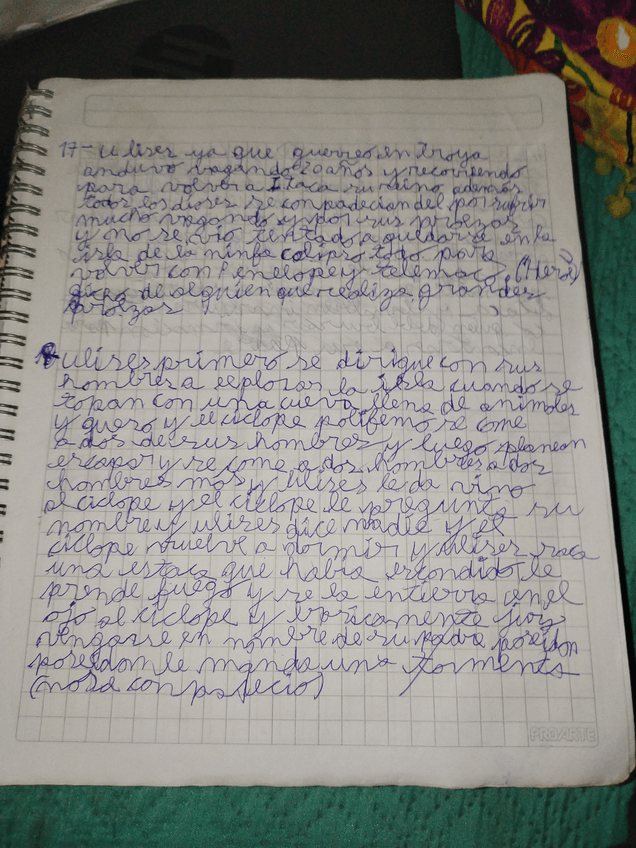 17- Ulises ya que guerreo en troya
anduvo vagando 20 años y recorriendo
para volver a Itaca su reino ademas
todos los dioses se compadecian del por sufrir
mucho vagando y por sus proezas
y no se vio tentado a quedarse en la
isla de la ninfa calipso todo para
volver con Penelope y telemaco. (Heroe)
dicho de alguien que realiza grandes
proezas
18- Ulises primero se dirigue con sus
hombres a explorar la isla cuando se
topan con una cueva llena de animales
y queso y el ciclope polifemo se come
a dos de sus hombres y luego planean
escapar y se come a dos hombres a dos
hombres mas y ulises le da vino
al ciclope y el ciclope le pregunta su
nombre y ulises dice nadie y el
ciclope vuelve a dormir y ulises saca
una estaca que habia escondido, le
prende fuego y se la entierra en el
ojo al ciclope y basicamente por
vengarse en nombre de su padre poseidon
poseidon le manda una tormenta
(nosa con
PROARTE